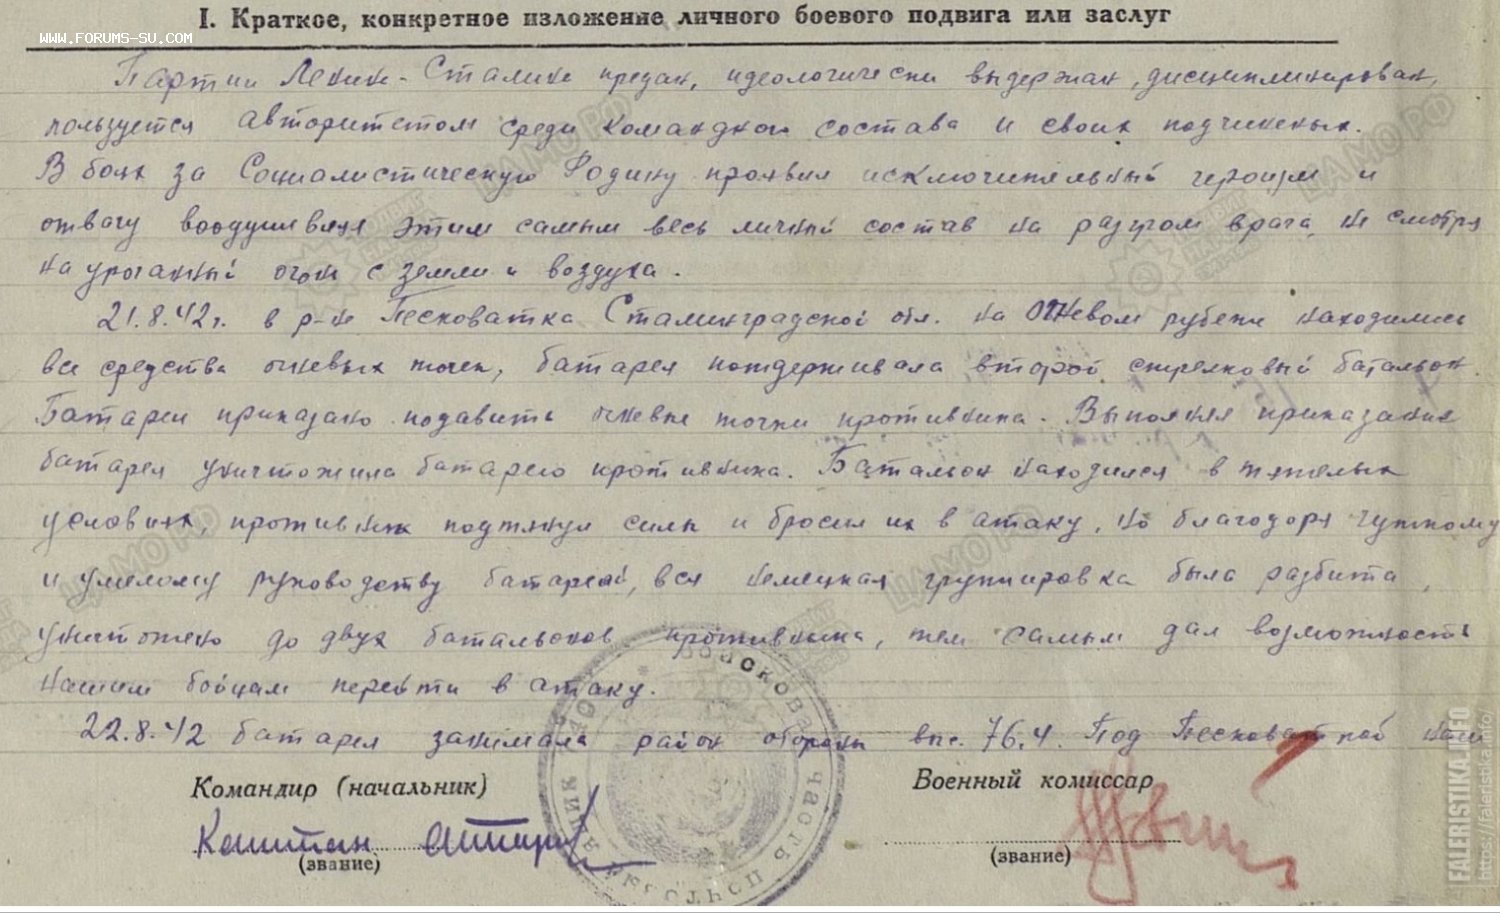 I. Краткое, конкретное изложение личного боевого подвига или заслуг
WWW.FORUMS-SU.COM
Партии Ленина-Сталина предан, идеологически выдержан, дисциплинирован,
пользуется авторитетом среди командного состава и своих подчиненых.
В боях за Социалистическую Родину проявил исключительный героизм и
отвагу воодушевляя этим самым весь личный состав на разгром врага, не смотря
на ураганный огонь с земли и воздуха.
21.8.42г. в р-не Песковатка Сталинградской обл. на огневом рубеже находились
все средства огневых точек, батарея поддерживала второй стрелковый батальон.
Батареи приказано подавить огневые точки противника. Выполняя приказание
батарея уничтожила батарею противника. Батальон находился в тяжелых
условиях, противник подтянул силы и бросил их в атаку, но благодоря чуткому
и умелому руководству батареей, вся немецкая группировка была разбита,
уничтожено до двух батальонов противника, тем самым дал возможность
нашим бойцам перейти в атаку.
22.8.42 батарея занимала район обороны выс. 76.4. Под Песковаткой наши
Командир (начальник)
Военный комиссар
Капитан
(звание)
(звание)
ВОЙСКОВАЯ ЧАСТЬ
ЦАМО РФ
FALERISTIKA.INFO
https://faleristika.info/